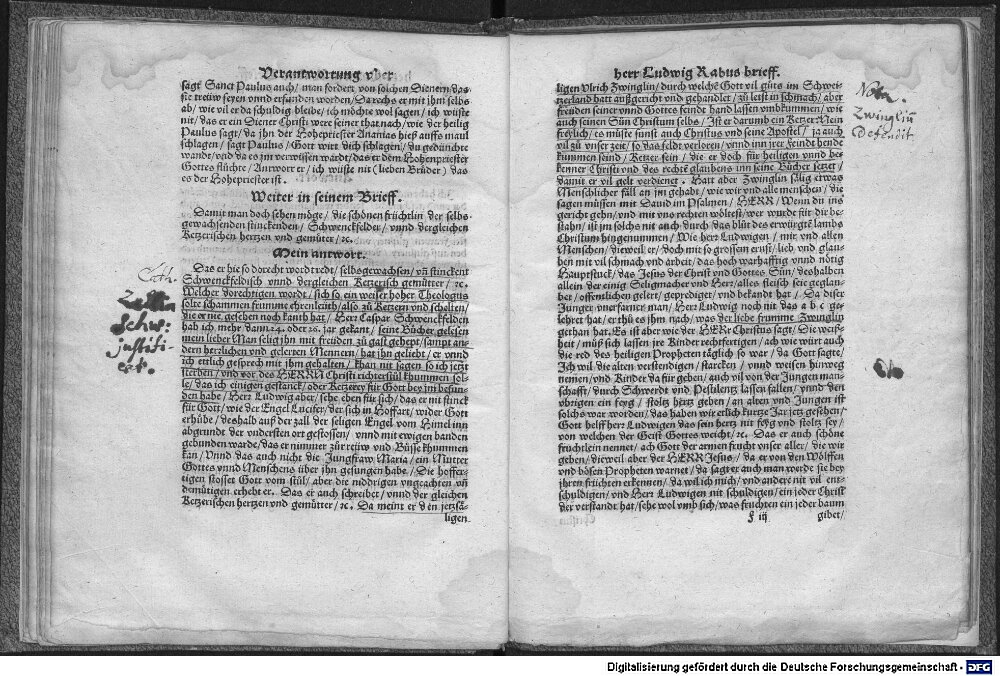 Verantwortung vber
sagt Sanct Paulus auch/ man fordert von solchen Dienern das
sie treüw seyen vnnd erfunden worden/ Da rechs er mit jhm selbs
ab/ wie vil er da schuldig bleibe/ ich möchte wol sagen/ ich wüste
nit/ das er ein Diener Christi were seiner that nach/ wie der heilig
Paulus sagt/ da jhn der Hohepriester Ananias hieß auffs maul
schlagen/ sagt Paulus/ Gott wirt dich schlagen/ du gedünchte
wandt/ vnd da es jm verwissen wardt/ das er dem Hohenpriester
Gottes flüchte/ Antwort er/ ich wüste nit (lieben Brüder) das
es der Hohepriester ist.
Weiter in seinem Brieff.
Damit man doch sehen möge/ die schönen früchtlin der selbs
gewachsenden stinckenden/ Schwenckfelder/ vnnd dergleichen
Ketzerischen hertzen vnd gemüter/ ꝛc.
Mein antwort.
Das er hie so dorecht wordt redt/ selbsgewachsen/ vñ stinckent
Schwenckfeldisch vnnd dergleichen Ketzerisch gemütter/ ꝛc.
Welcher dorechtigen wordt/ sich so ein weiser hoher Theologus
solte schammen fromme ehrenleuth/ also zu Ketzern vnd schelten/
die er nie gesehen noch kanth hat/ Herr Caspar Schwenckfelden
hab ich mehr dann 24. oder 25. jar gekant/ seine Bücher gelesen
mein lieber Man selig jhn mit freüden zu gast gehept/ sampt an-
dern herrlichen vnd gelerten Mennern/ hat jhn geliebt/ er vnnd
ich ettlich gesprech mit jhm gehalten/ khan nit sagen/ so ich jetzt
sterben/ vnd vor des HERRN Christi richterstül khummen sol-
le/ das ich einigen gestanck/ oder Ketzerey für Gott bey im befun-
den habe/ Herr Ludwig aber/ sehe eben für sich/ das er nit stinck
für Gott/ wie der Engel Lucifer/ der sich in Hoffart/ wider Gott
erhübe/ deshalb auß der zall der seligen Engel vom Himel inn
abgrundt der vndersten ort gestossen/ vnnd mit ewigen banden
gebunden warde/ das er nimmer zür reüw vnd Büsse khummen
kan/ Vnnd das auch nit die Jungfraw Maria/ ein Mutter
Gottes vnnd Menschens über jhn gesungen habe/ Die hoffer-
tigen stosset Gott vom stül/ aber die nidrigen vngeachten vñ
demütigen erhebt er. Das er auch schreibet/ vnnd der gleichen
Ketzerischen hertzen vnd gemüter/ ꝛc. Da meint er den jetzsä-
ligen
Cath.
Schw:
justifi-
cat.
herr Ludwig Rabus brieff.
ligen Vlrich Zwinglin/ durch welchē Gott vil güts im Schwei-
tzerland hatt außgericht vnd gehandlet/ zu letst in schmach/ aber
freüden seiner vnnd Gottes feinde hand lassen vmbkummen/ wie
auch seinen Sün Christum selbs/ Ist er darumb ein Ketzer Nein
freylich/ es müste sunst auch Christus vnd seine Apostel/ ja auch
vil zu vnser zeit/ so das feldt verloren/ vnnd inn jrer feindt hende
kummen seind/ Ketzer sein/ die er doch für heiligen vnnd be-
kenner Christi vnd des rechtē glaubens inn seine Bücher setzet/
damit er vil gelt verdienet. Hatt aber Zwinglin sälig etwas
Menschlicher fäll an jm gehabt/ wie wir vnd alle menschen/ die
sagen müssen mit Dauid im Psalmen/ HERR/ Wenn du ins
gericht gehn/ vnd mit vns rechten wöltest/ wer wurde für dir be-
stahn/ ist jm solchs nit auch durch das blüt des erwürgtē lambs
Christum hingenummen/ Wie herr Ludwigen/ mir vnd allen
Menschen/ dieweil er/ doch mit so grossem ernst/ lieb vnd glau-
ben mit vil schmach vnd arbeit/ das hoch warhafftig vnnd nötig
Hauptstuck/ das Jesus der Christ vnd Gottes Sün/ deshalben
allein der einig Seligmacher vnd Herr/ alles fleisch seie geglau-
bet/ offentlichen gelert/ geprediget/ vnd bekandt hat/ Da diser
Junger vnerfarner man/ Herr Ludwig noch nit das a b c ge-
lehret hat/ er thü es jhm nach/ was der liebe frumme Zwinglin
gethan hat. Es ist aber wie der HERR Christus sagt/ Die weiß-
heit/ müß sich lassen jre Kinder rechtfertigen/ ach wie würt auch
die red des heiligen Propheten täglich so war/ da Gott sagte/
Ich wil die alten verstendigen/ starcken/ vnnd weisen hinweg
nemen/ vnd Kinder da für geben/ auch vil von der Jungen man-
schafft/ durch Schwerdt vnd Pestilentz lassen fallen/ vnnd den
vbrigen ein feyg/ stoltz hertz geben/ an alten vnd Jungen ist
solchs war worden/ das haben wir etlich kurtze Jar jetz gesehen/
Gott helff herr Ludwigen das sein hertz nit feyg vnd stoltz sey/
von welchen der Geist Gottes weicht/ ꝛc. Das er auch schöne
fruchtlein nennet/ ach Gott der armen frucht vnser aller/ die wir
geben/ dieweil aber der HERR Jesus/ da er von den Wölffen
vnd bösen Propheten warnet/ da sagt er auch man werde sie bey
jhren früchten erkennen/ da wil ich mich/ vnd andere nit vil ent-
schuldigen/ vnd Herr Ludwigen nit schuldigen/ ein jeder Christ
der verstand hat/ sehe wol vmb sich/ was fruchten ein jeder baum
F iij gibet/
Zwinglin̄
Defendit
Digitalisierung gefördert durch die Deutsche Forschungsgemeinschaft - DFG